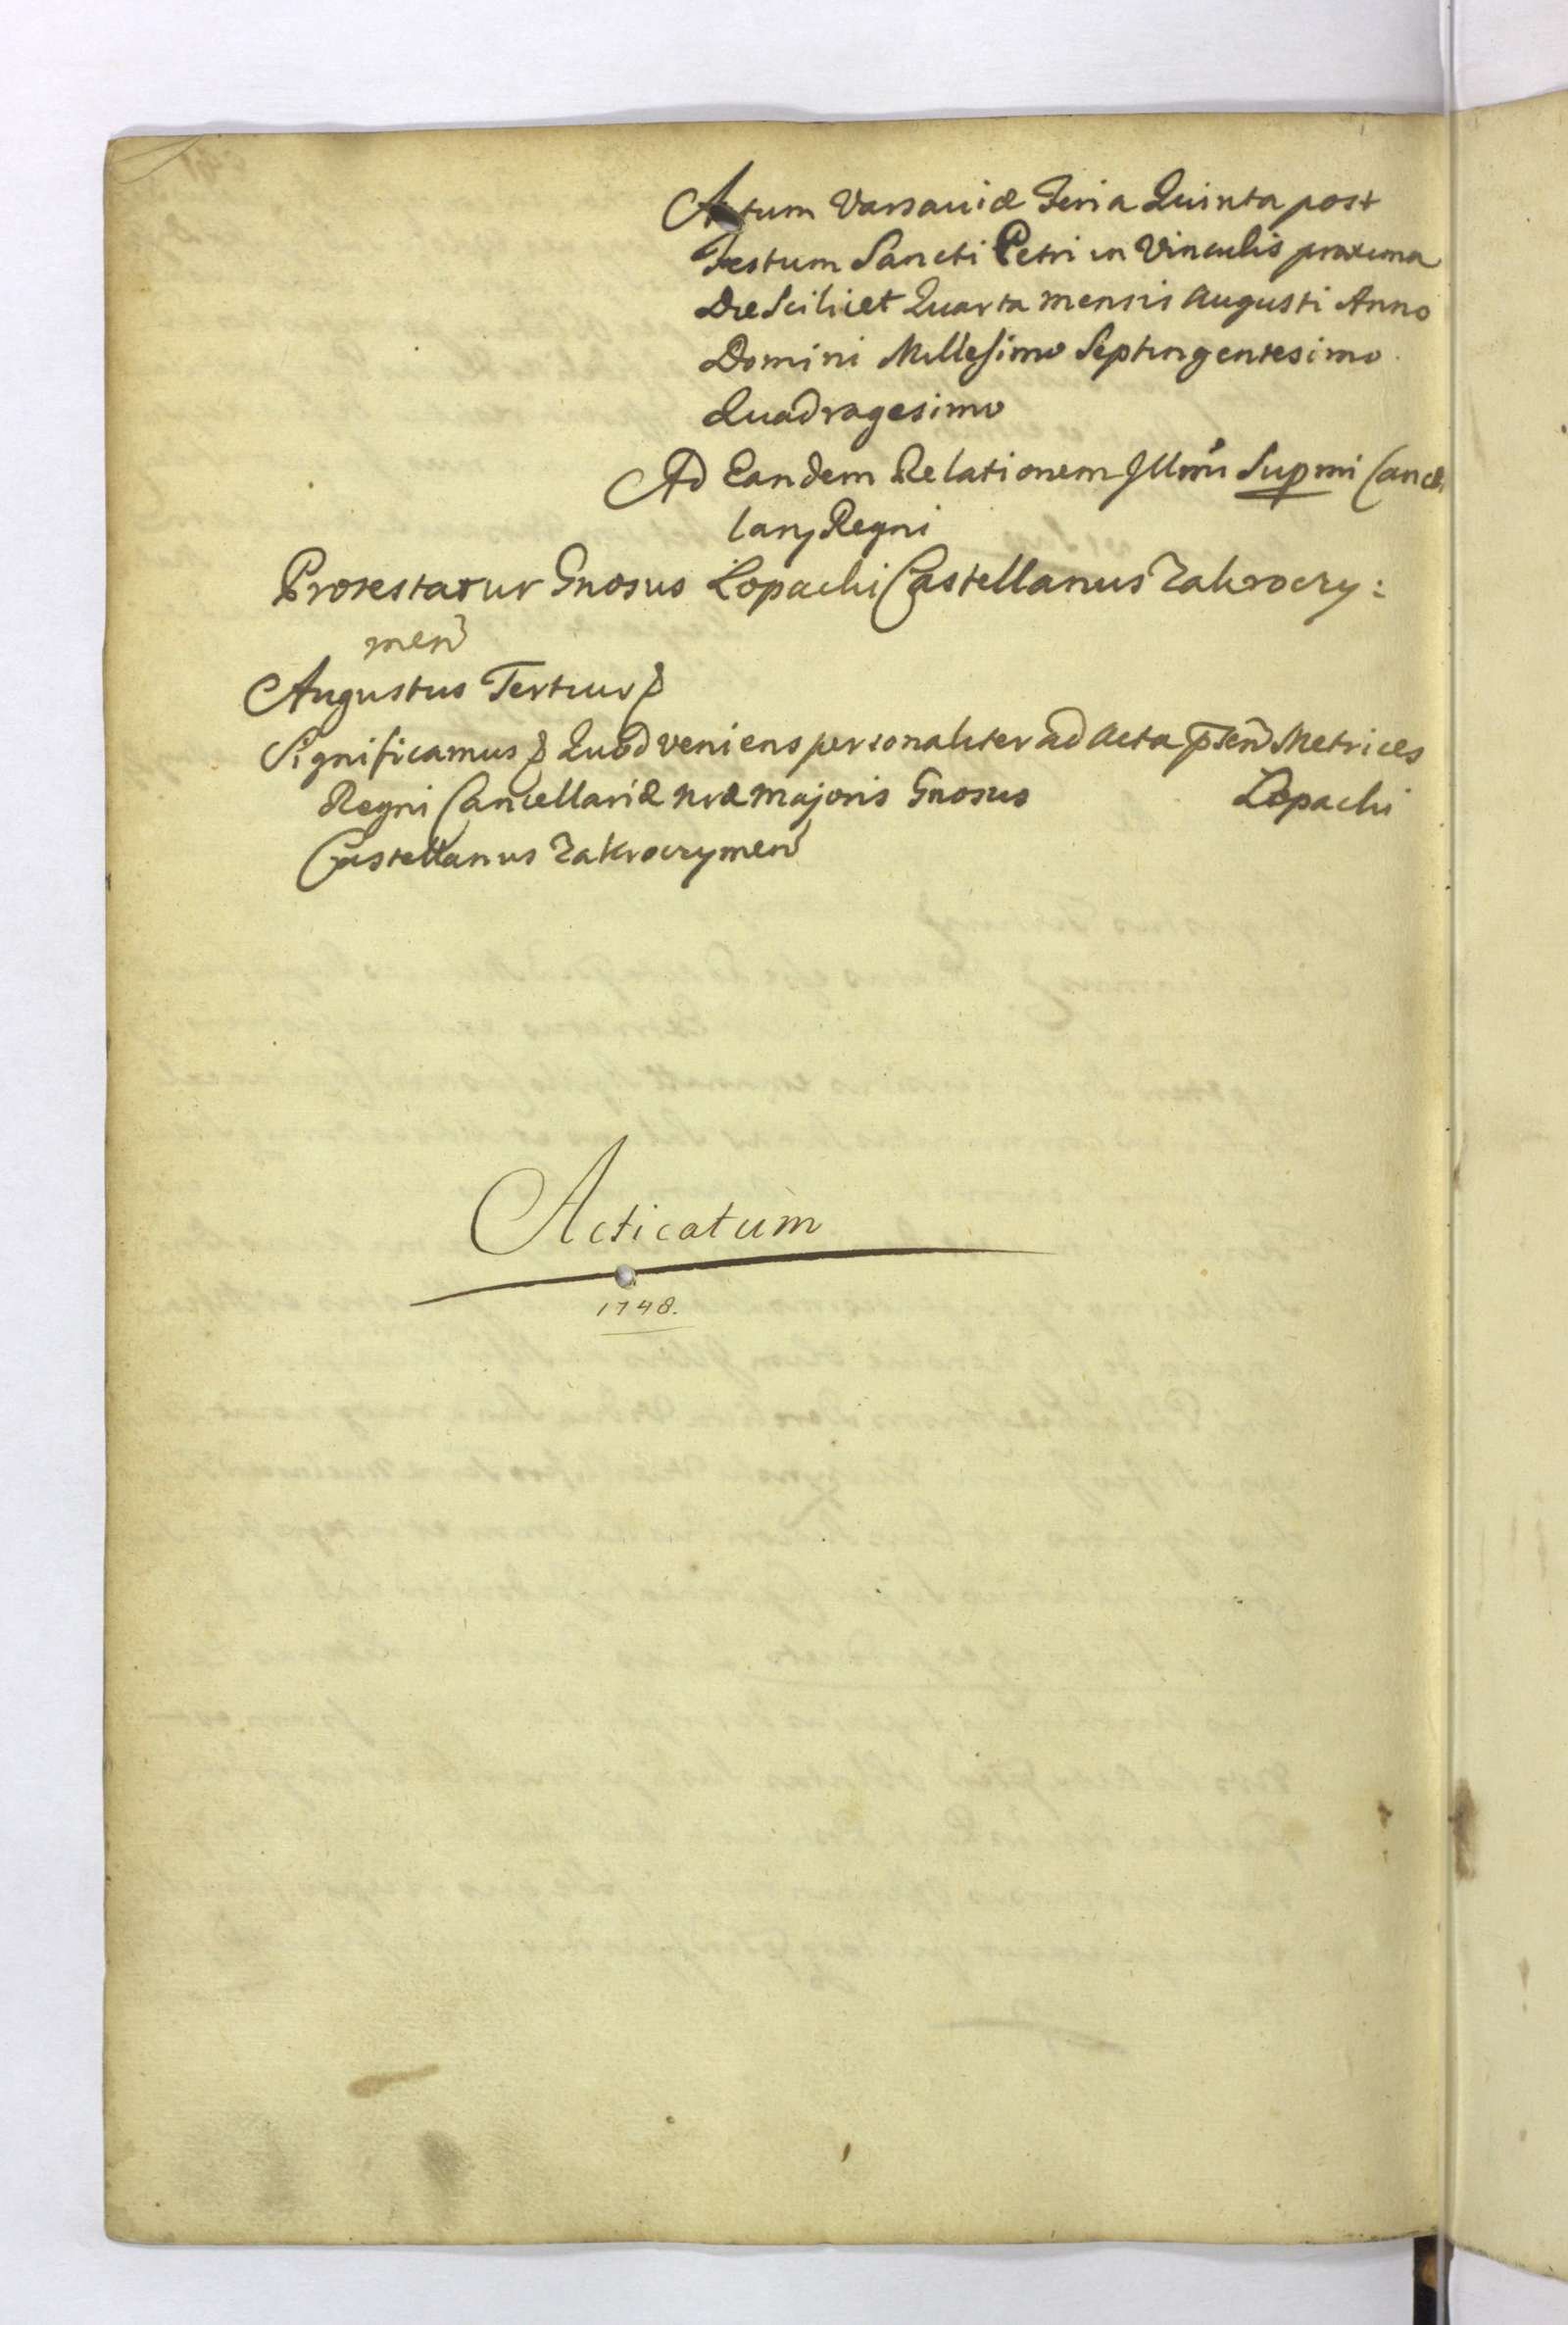 Actum Varsaviæ Feria Quinta post
Festum Sancti Petri in Vinculis proxima
Die Scilicet Quarta mensis Augusti Anno
Domini Millesimo Septingentesimo
Quadragesimo
Ad Eandem Relationem Illmi Supmi Cancel
larij Regni
Protestatur Gnosus Lopacki Castellanus Zakroczy:
men
Augustus Tertius &
Significamus & Quod veniens personaliter ad Acta pten Metrices
Regni Cancellariæ nræ majoris Gnosus Lopacki
Castellanus Zakroczymen
Acticatum
1748.